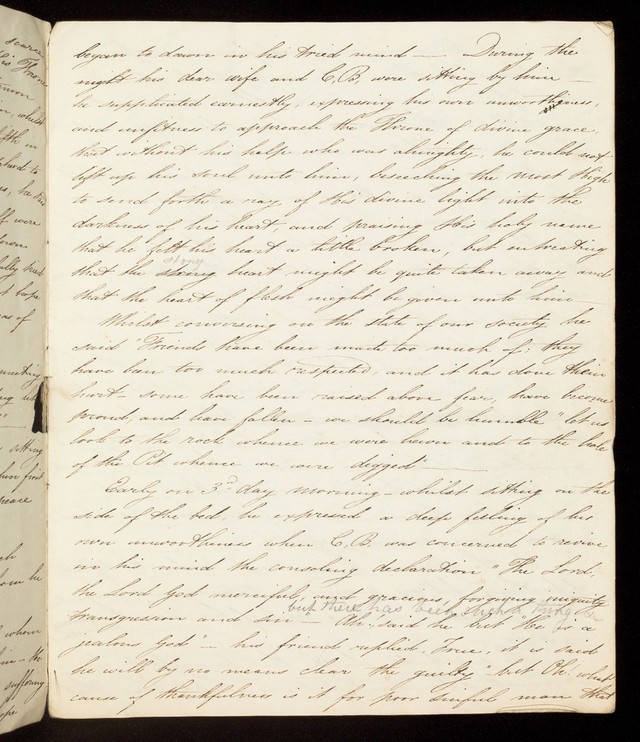 began to dawn in his tried mind — During the
night his dear wife and C.B. were sitting by him —
he supplicated earnestly, expressing his own unworthiness,
and unfitness to approach the Throne of divine grace,
that without his help who was almighty, he could not
lift up his soul unto him, beseeching the most High
to send forth a ray of His divine light into the
darkness of his heart, and praising His holy name
that he felt his heart a little broken, but entreating
stony
that the strong heart might be quite taken away and
that the heart of flesh might be given unto him —
Whilst conversing on the state of our society he
said "Friends have been made too much of; they
have been too much respected, and it has done them
hurt – some have been raised above fear, have become
proud, and have fallen – we should be humble" "let us
look to the rock whence we were hewn and to the hole
of the Pit whence we were digged" —
Early on 3rd day morning – whilst sitting on the
side of the bed, he expressed a deep feeling of his
own unworthiness when C.B. was concerned to revive
in his mind the consoling declaration "The Lord,
the Lord God merciful, and gracious, forgiving iniquity
but there has been such a thing
transgression and sin — Ah, said he but "He is a
jealous God" – his friend replied, True, it is said
he will by no means clear the guilty" – but Oh. what
cause of thankfulness is it for poor sinful man that